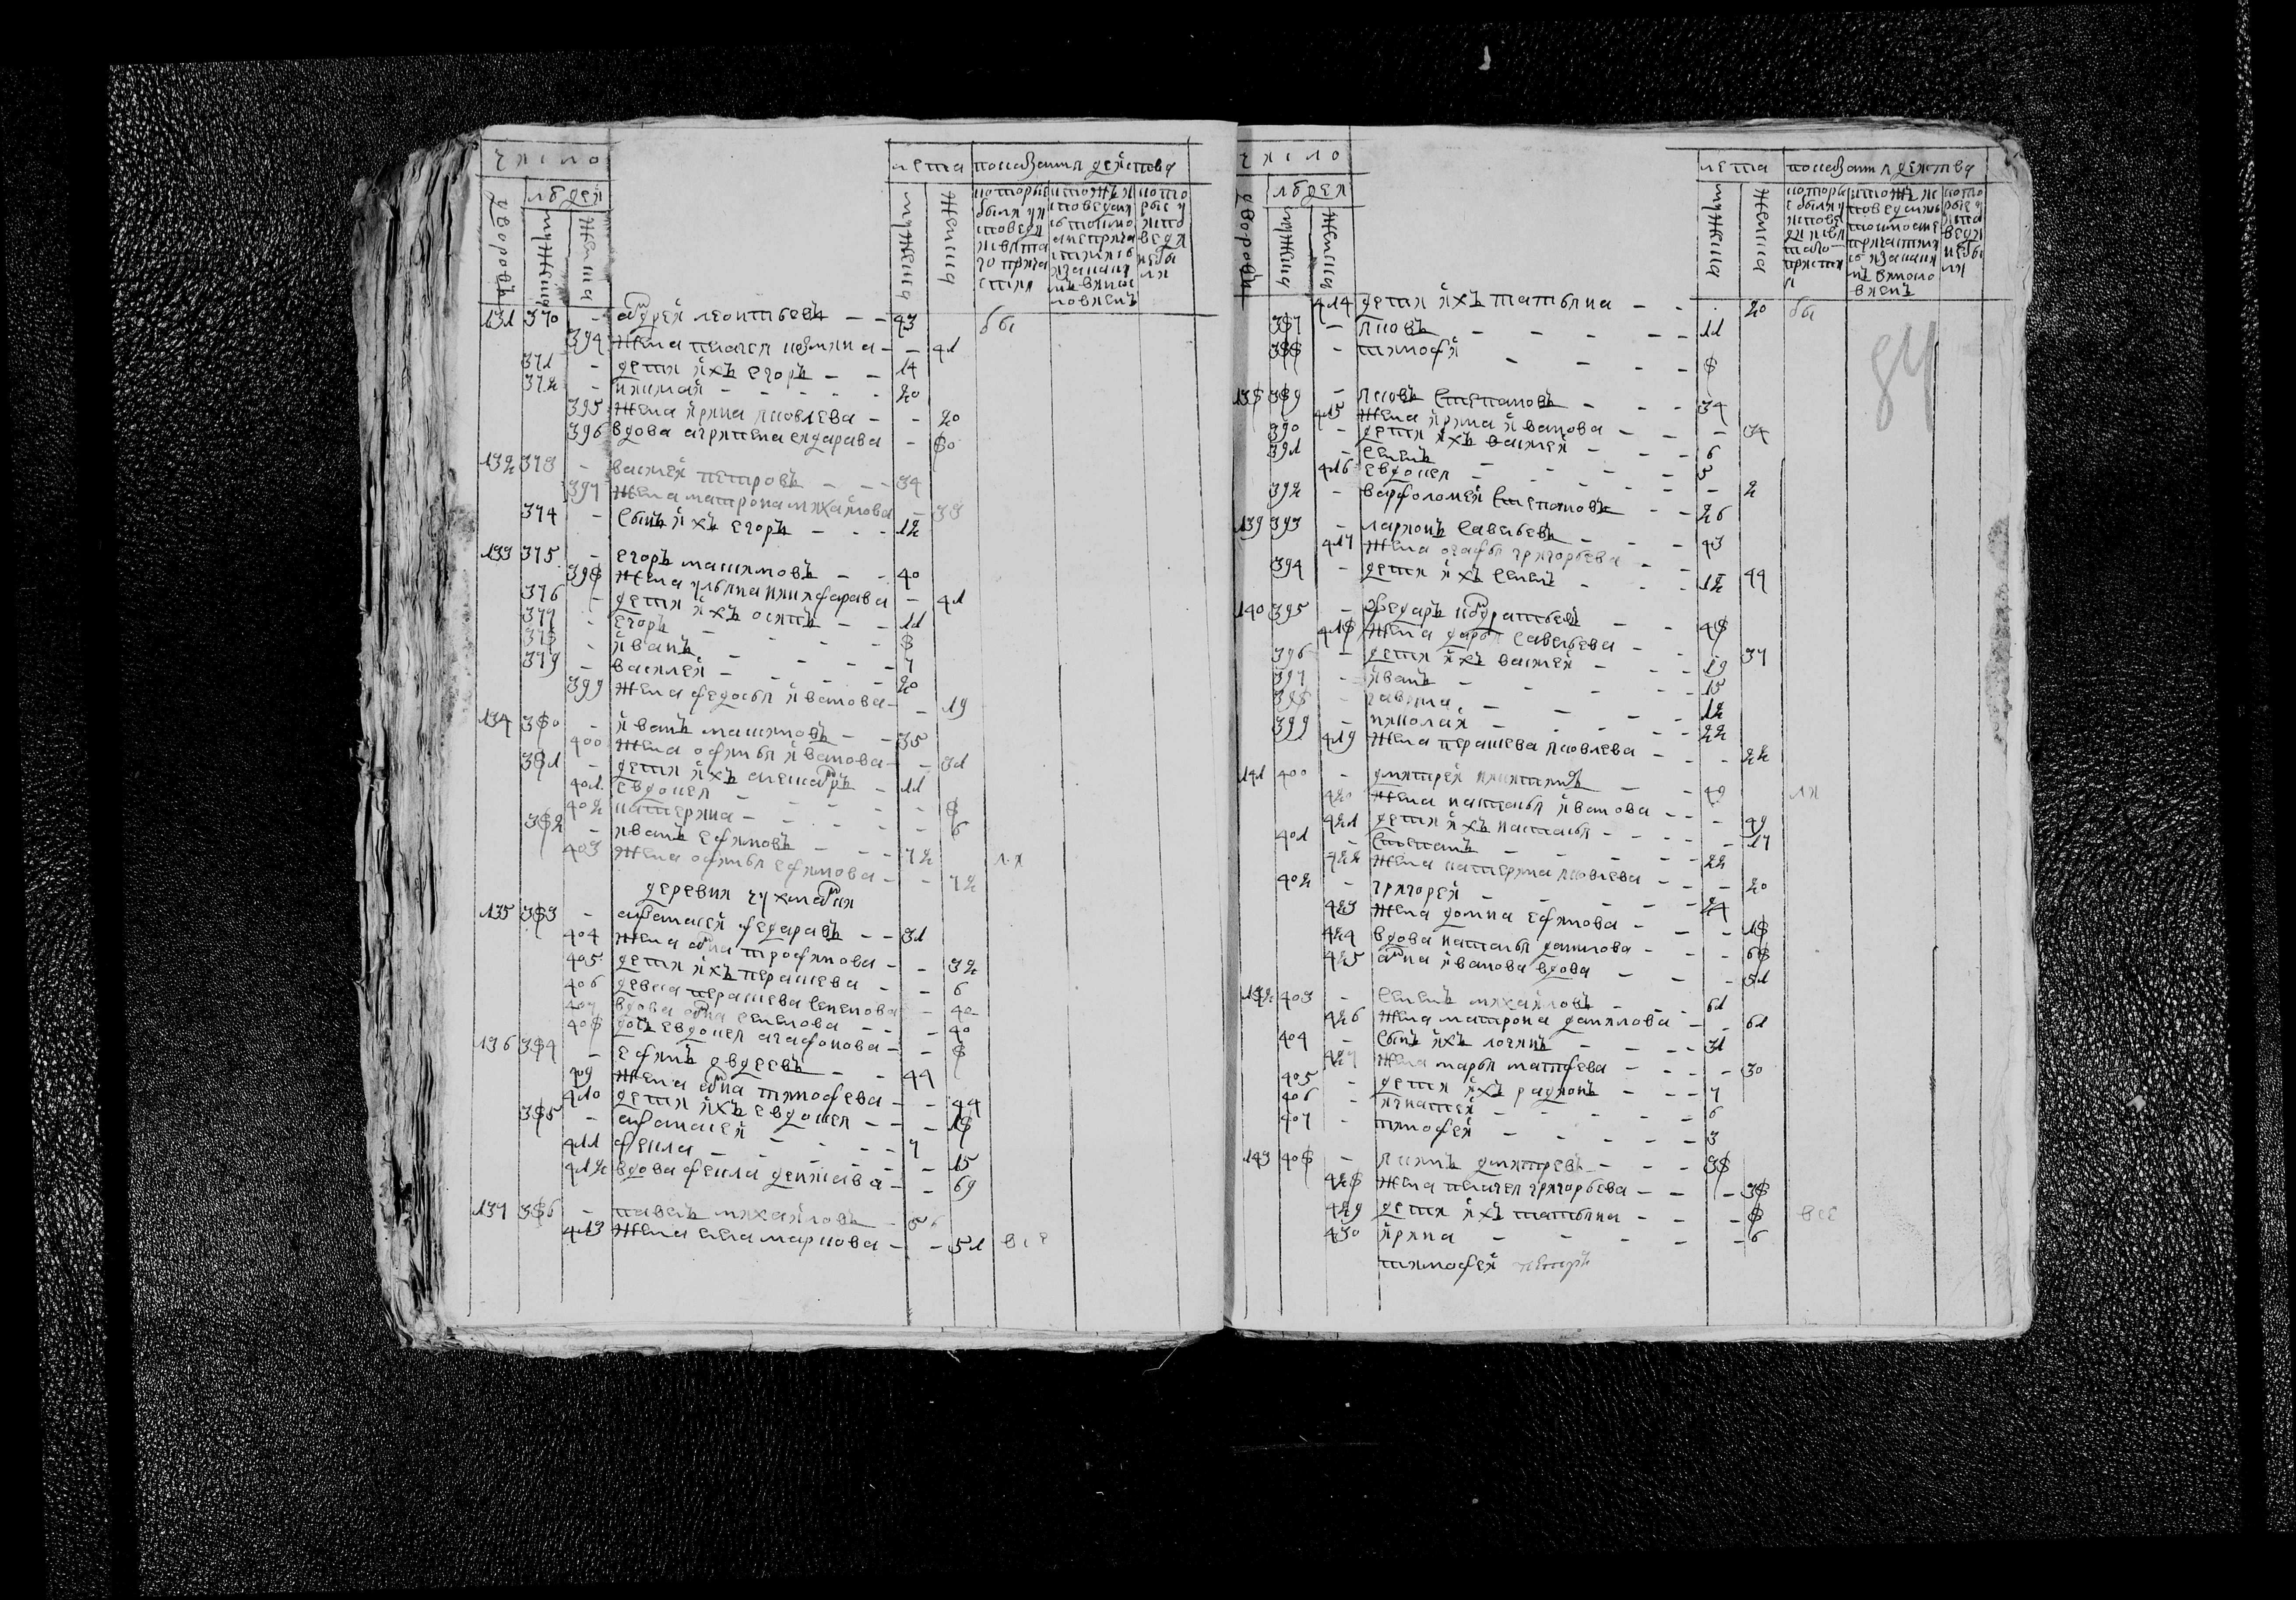 число
людей
дворовъ
мужеска
женска
лета
мужеска
женска
показания действа
которые были у исповеди и святаго причастия
131 370 - андрей леонтьевъ - - 43 бы
394 жена пелагея козмина - - 41
371 - дети ихъ егоръ - - 14
372 - николай - - - - 20
395 жена ирина яковлева - - 20
396 вдова агрипена ендарава - 80
132 373 - василей петровъ - - - 34
397 жена матрона михайлова - 38
374 - сынъ ихъ егоръ - - - 12
133 375 - егоръ максимовъ - - 40
398 жена ульяна никифарава - 41
376 - дети ихъ осипъ - - 11
377 - егоръ - - - - 8
378 - иванъ - - - - 7
379 - василей - - - - 20
399 жена федосья иванова - - 19
134 380 - иванъ максимовъ - - 35
400 жена офимья иванова - - 31
381 - дети ихъ александръ - 11
401 евдокея - - - - 8
402 катерина - - - - - 6
382 - иванъ ефимовъ - - - 72
403 жена офимья ефимова - - 72 ли
деревня чухмандия
135 383 - афанасей федаравъ - - 31
404 жена анна трофимова - - 32
405 дети ихъ парасшева - - 6
406 девка парасшева семенова - 40
407 вдова анна семенова - - - 40
408 дочь евдокея агафонова - - 8
136 384 - ефимъ авдеевъ - - 44
409 жена анна тимофева - - 44
410 дети ихъ евдокея - - - 18
385 - афанасей - - - - 7
411 фекла - - - - - 15
412 вдова фекла денисава - - 69
137 386 - павелъ михайловъ - 56
413 жена елена маркова - - 51 все
число
людей
дворовъ
мужеска
женска
лета
мужеска
женска
показания действа
84
414 дети ихъ татьяна - - 20 бы
387 - яковъ - - - - - 11
388 - тимофей - - - 8
138 389 - яковъ степановъ - - - 34
415 жена ирина иванова - - - 34
390 - дети ихъ василей - - - 6
391 - семенъ - - - - 5
416 евдокея - - - - - 2
392 - варфоломей степановъ - - 26
139 393 - ларионъ савельевъ - - - 43
417 жена агафья григорьева - - 44
394 - дети ихъ семенъ - - - 12
140 395 - федаръ кондратьевъ - - 48
418 жена дарья савельева - - 37
396 - дети ихъ василей - - - 19
397 - иванъ - - - - - 15
398 - гаврила - - - - 12
399 - николай - - - - - 22
419 жена парасшева яковлева - - - 22
141 400 - дмитрей никитинъ - - 49 ли
420 жена наталья иванова - - - 49
421 дети ихъ наталья - - - - 17
401 - степанъ - - - - - 22
422 жена катерина яковлева - - - 20
402 - григорей - - - - - 24
423 жена домна ефимова - - - 18
424 вдова наталья данилова - - - 68
425 анна иванова вдова - - - 51
142 403 - семенъ михайловъ - - - 61
426 жена матрона данилова - - 61
404 - сынъ ихъ логинъ - - - 31
427 жена марья матфева - - - - 30
405 - дети ихъ радионъ - - - 7
406 - игнатей - - - - - 6
407 - тимофей - - - - - 3
143 408 - якимъ дмитревъ - - - 38
428 жена пелагея григорьева - - - 38
429 дети ихъ татьяна - - - 8 все
430 ирина - - - - - 6
тимофей петръ